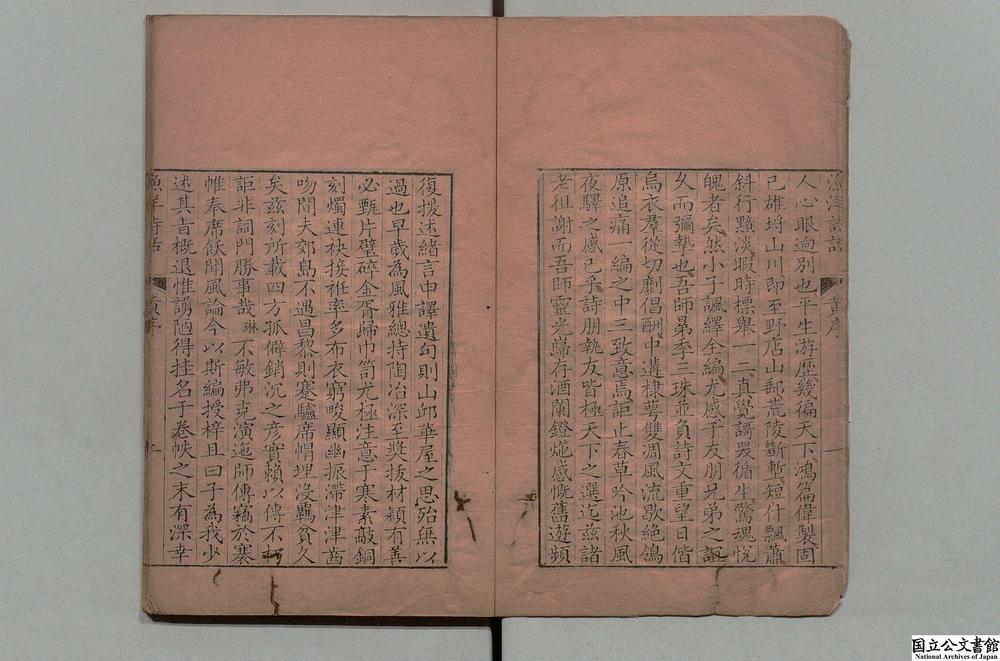 漁洋詩話
黃序
一
人心眼迥別也平生游歷幾徧天下鴻篇偉製固
已雄埒山川即至野店山郵荒陵斷塹短什飄蕭
斜行黯淡暇時標舉一二眞覺謌哭循生驚魂悅
魄者矣然小子諷繹全編尤感于友朋兄弟之誼
久而彌摯也吾師昴季三珠並負詩文重望日偕
烏衣羣從切劘倡酬中遘棣萼雙凋風流歇絶鴒
原追痛一編之中三致意焉詎止春草吟池秋風
夜驛之感已乎詩朋執友皆極天下之選迄兹諸
老徂謝而吾師靈光巋存酒闌鐙灺感慨舊遊頻
復援述緒言申譯遺句則山邱華屋之思殆無以
過也早歲為風雅總持陶冶深至奬拔材穎有善
必甄片璧碎金胥歸巾笥尤極注意于寒素敲銅
刻燭連袂接袵率多布衣窮畯顯幽振滯津津齒
吻間夫郊島不遇昌黎則蹇驢席帽埋沒羇貧久
矣兹刻所載四方孤僻銷沉之彦實賴以傳不朽
詎非詞門勝事哉琳不敏弗克演迤師傳竊於寨
帷奉席飫聞風論今以斯編授梓且曰子為我少
述其旨概退惟謭陋得挂名于卷帙之末有深幸
漁洋詩話
黃序
二
国立公文書館
National Archives of Japan